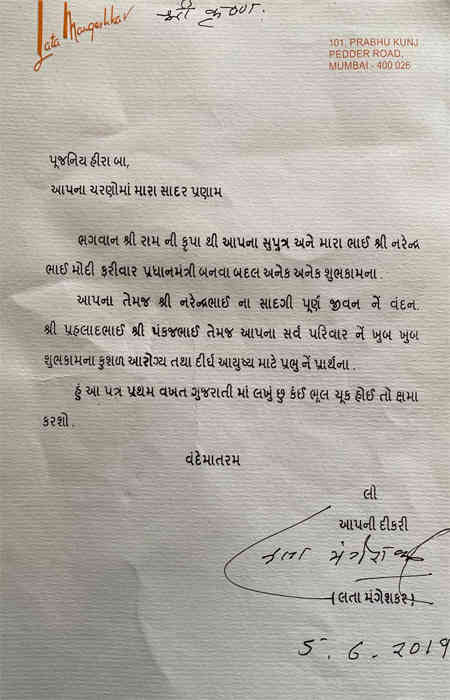 Lata Mangeshkar
श्री कृष्ण.
101, PRABHU KUNJ
PEDDER ROAD,
MUMBAI - 400 026
પૂજનિય હીરા બા,
આપના ચરણોમાં મારા સાદર પ્રણામ
ભગવાન શ્રી રામ ની કૃપા થી આપના સુપુત્ર અને મારા ભાઈ શ્રી નરેન્દ્ર
ભાઈ મોદી ફરીવાર પ્રધાનમંત્રી બનવા બદલ અનેક અનેક શુભકામના.
આપના તેમજ શ્રી નરેન્દ્રભાઈ ના સાદગી પૂર્ણ જીવન નેં વંદન.
શ્રી પ્રહલાદભાઈ શ્રી પંકજભાઈ તેમજ આપના સર્વ પરિવાર નેં ખુબ ખુબ
શુભકામના કુશળ આરોગ્ય તથા દીર્ઘ આયુષ્ય માટે પ્રભુ નેં પ્રાર્થના.
હું આ પત્ર પ્રથમ વખત ગુજરાતી માં લખું છુ કંઈ ભૂલ ચૂક હોઈ તો ક્ષમા
કરશો.
વંદેમાતરમ
લી
આપની દીકરી
लता मंगेशकर
(લતા મંગેશકર)
5.6.2019